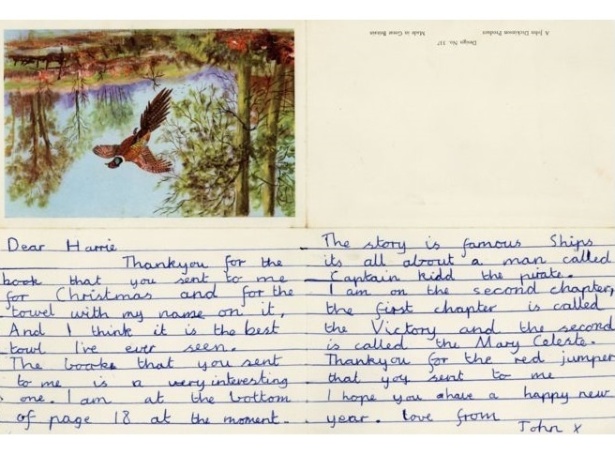 A John Dickinson Product
Design No. 337
Made in Great Britain
Dear Harrie
Thankyou for the
book that you sent to me
for Christmas and for the
towel with my name on it,
And I think it is the best
towl I've ever seen.
The book that you sent
to me is a very interesting
one. I am at the bottom
of page 18 at the moment.
The story is famous Ships
its all about a man called
Captain Kidd the pirate.
I am on the second chapter,
the first chapter is called
the Victory and the second
is called the Mary Celeste.
Thankyou for the red jumper
that you sent to me
I hope you have a happy new
year. love from
John x